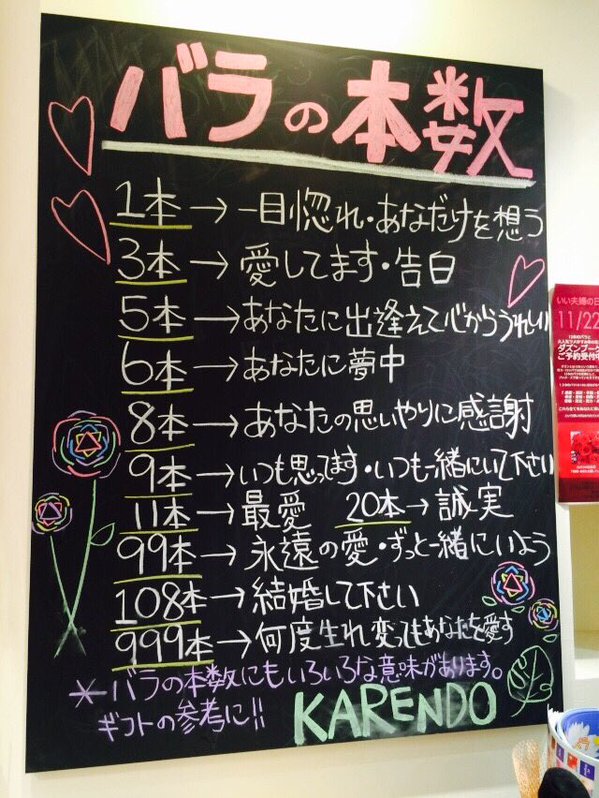 バラの本数
1本→一目惚れ・あなただけを想う
3本→愛してます・告白
5本→あなたに出逢えて心からうれしい
6本→あなたに夢中
8本→あなたの思いやりに感謝
9本→いつも思ってます・いつも一緒にいて下さい
11本→最愛 20本→誠実
99本→永遠の愛・ずっと一緒にいよう
108本→結婚して下さい
999本→何度生れ変ってもあなたを愛す
*バラの本数にもいろいろな意味があります。
ギフトの参考に!!
KARENDO
いい夫婦の日
11/22
ダズンブーケ
ご予約受付中